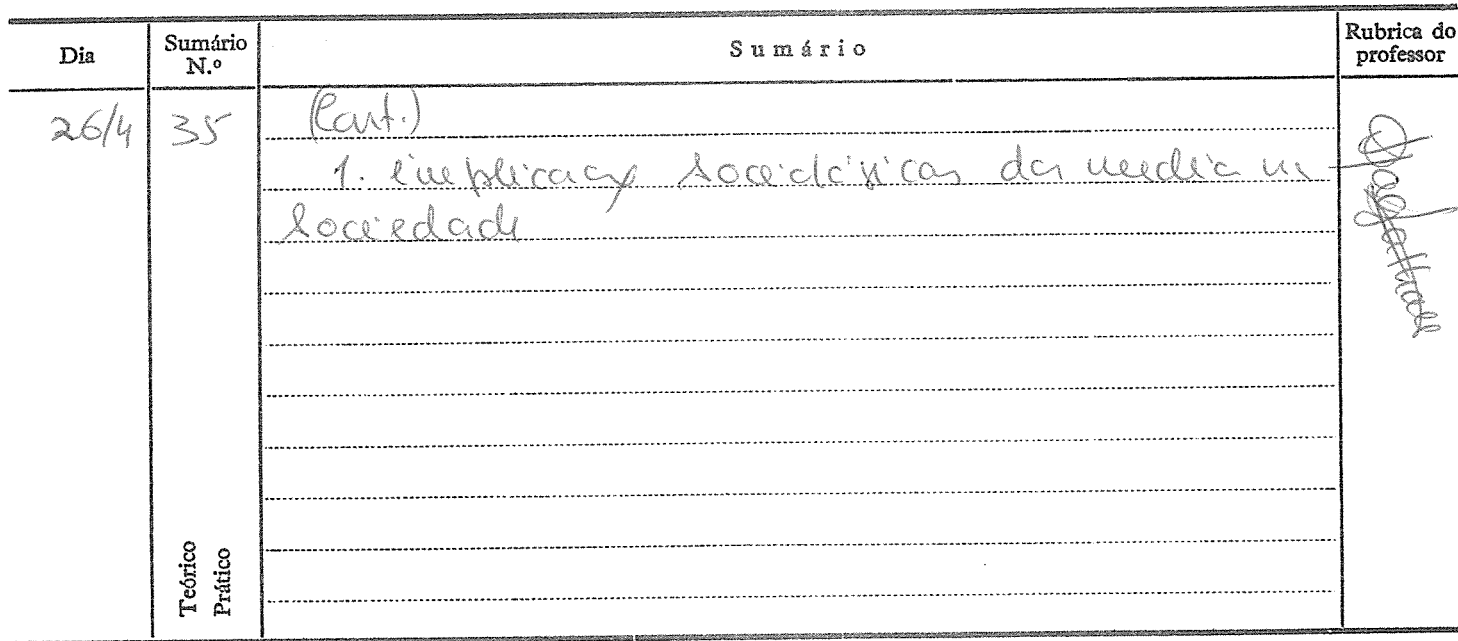 Dia
Sumário N.º
Sumário
Rubrica do professor
26/4
35
(Cont.)
1. implicações sociológicas da media na
sociedade
Teórico
Prático